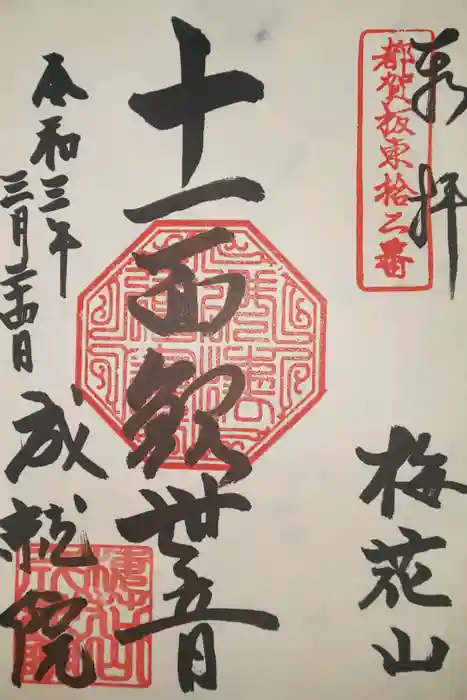 奉拝
都賀板東拾二番
梅花山
十一面観世音
令和三年
三月二十四日
成就院